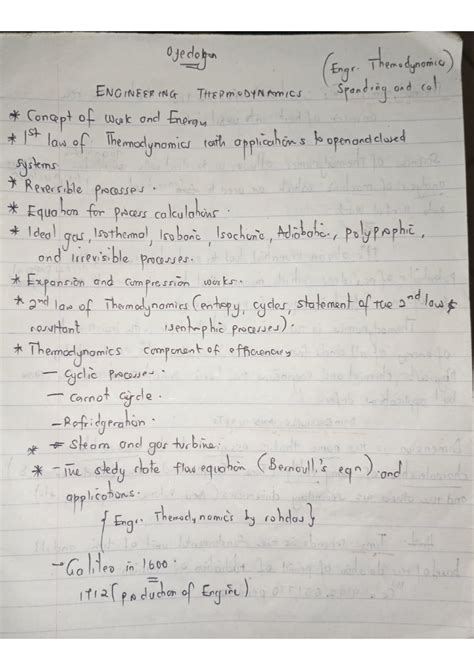 Ojedokun
(Engr. Themodynamics)
Spanding and cal
ENGINEERING THERMODYNAMICS
* Concept of work and Energy
* 1st law of Thermodynamics with applications to open and closed
systems
* Reversible processes.
* Equation for process calculations.
* Ideal gas, Isothermal, Isobaric, Isochoric, Adiabatic, polyprophic,
and Irrevisible processes.
* Expansion and compression works.
* 2nd law of Thermodynamics (entropy, cycles, statement of the 2nd law &
resultant isentrophic processes).
* Thermodynamics component of efficiency
- Cyclic Processes
- Carnot Cycle.
- Refridgeration.
* Steam and gas turbine.
* - The stedy state flow equation (Bernoulli's eqn) and
applications.
{Engr. Themodynamics by}
- Galileo in 1600
1712 (production of Engine)